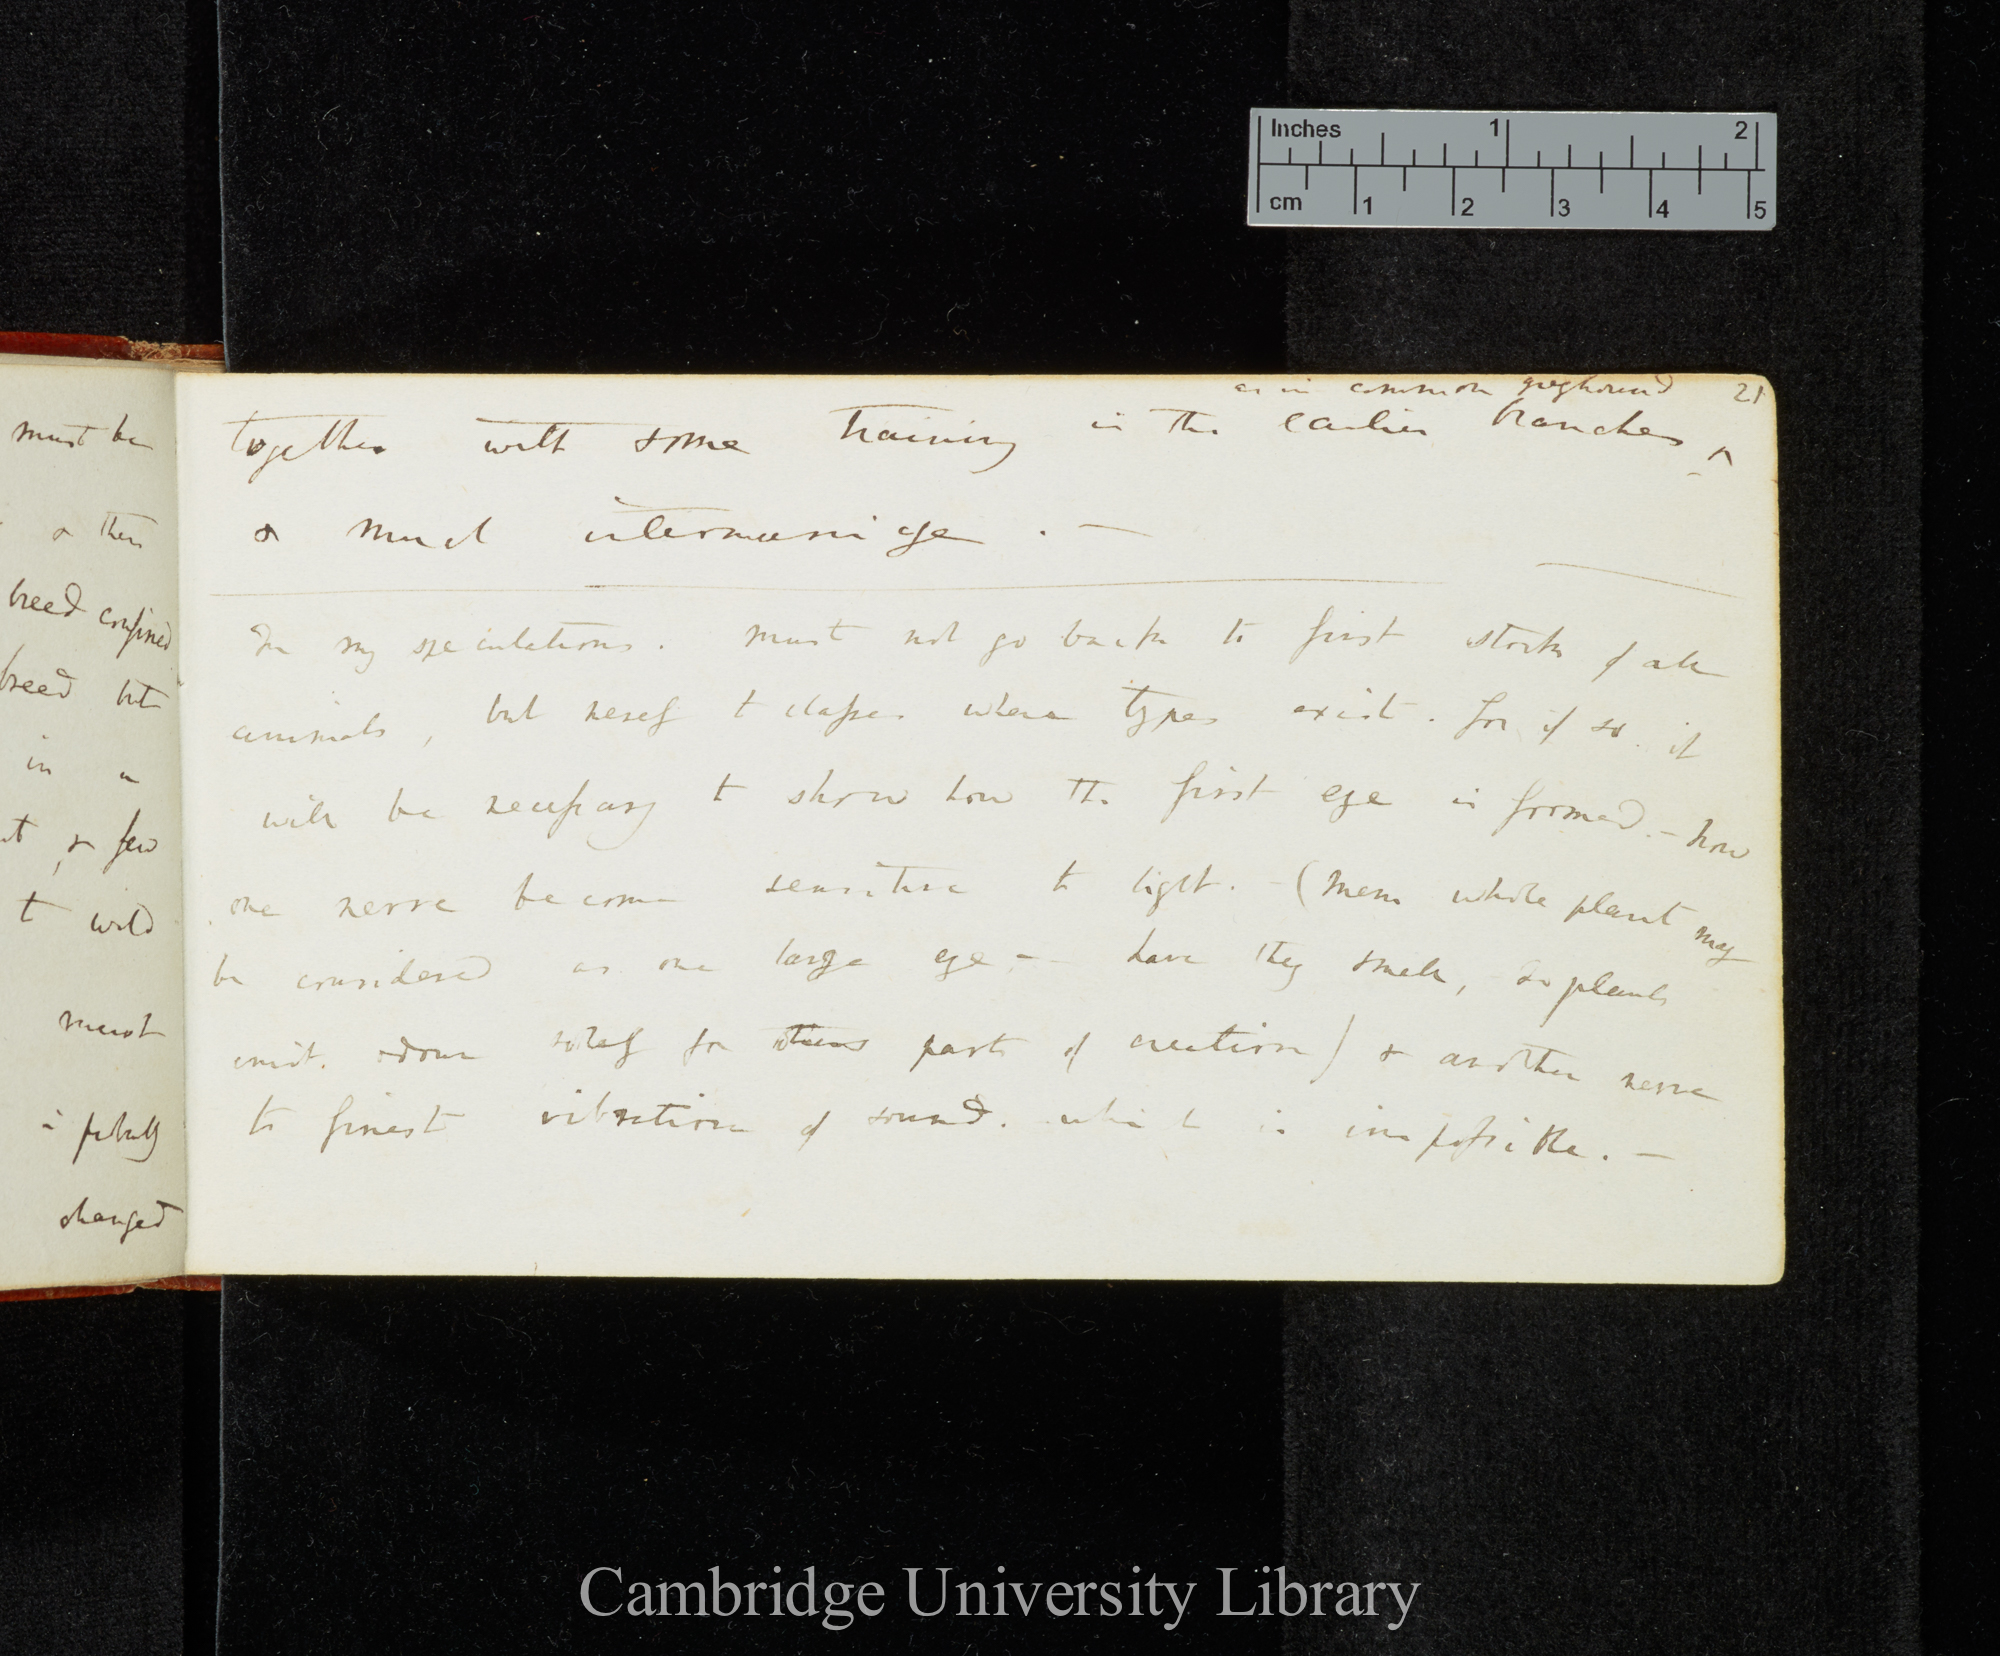 Inches 1 2
cm 1 2 3 4 5
must be
& then
breed confined
breed but
in a
& few
t wild
must
changed
as in common greyhound 21
together with some training in the earlier branches ^
& much intermarriage . —
In my speculations. must not go back to first stock of all
animals, but merely to classes where types exist. for if so. it
will be necessary to show how the first eye is formed. — how
one nerve become sensitive to light. — (Mem whole plant may
be considered as one large eye — have they smell, do plants
emit. odour solely for others parts of creation) & another nerve
to finest vibration of sound. which is impossible. —
Cambridge University Library